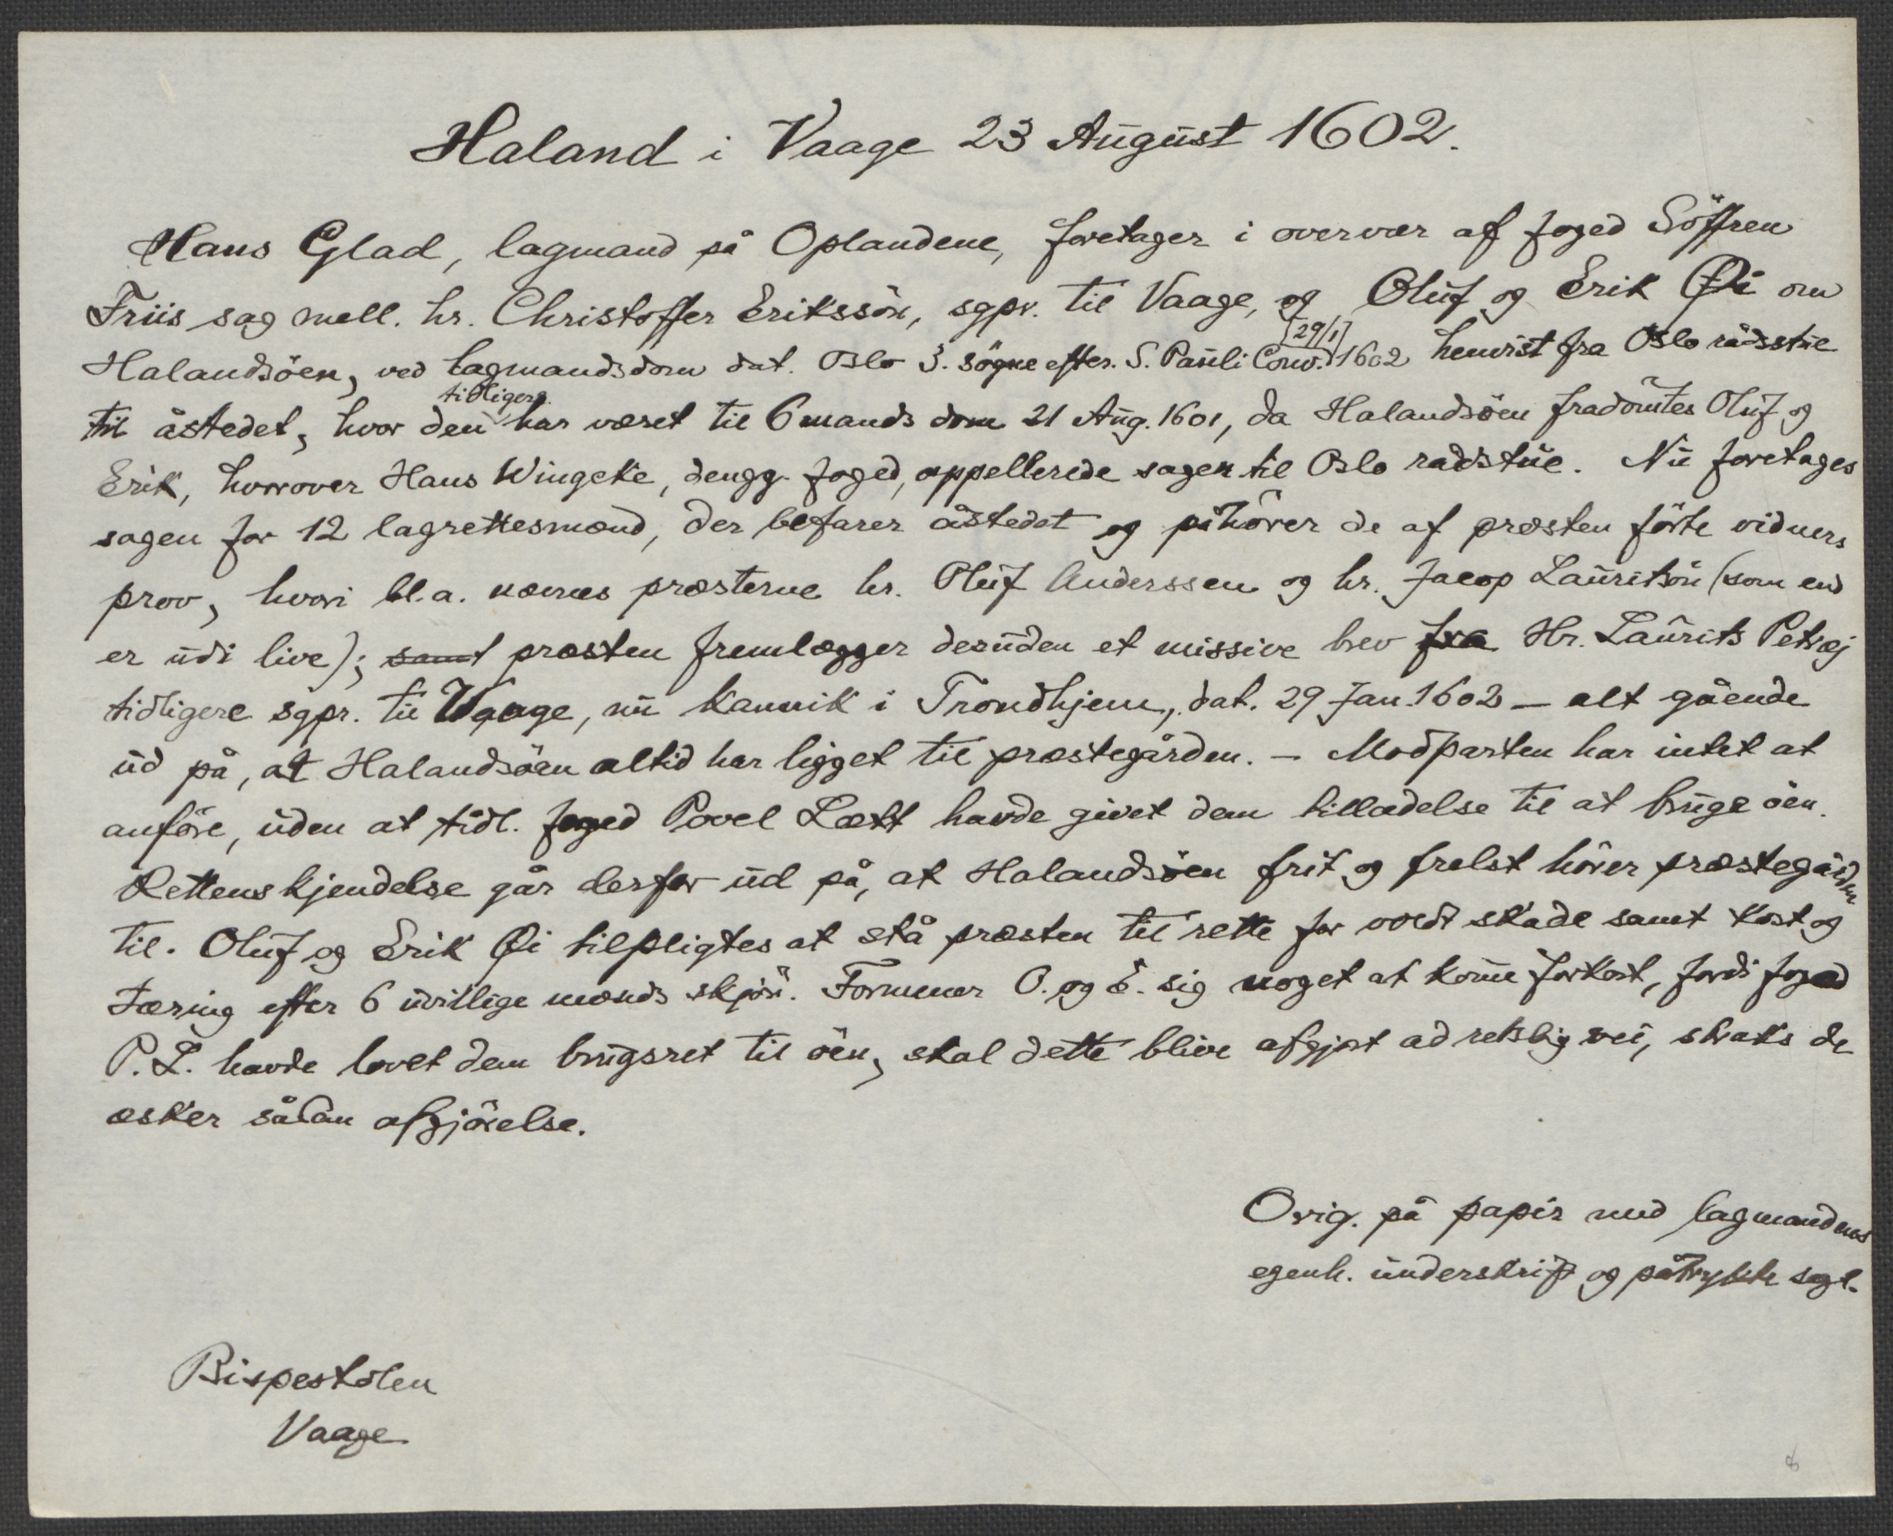 Haland i Vaage 23 August 1602.
Hans Glad, lagmand på Oplandene, foretager i overvær af foged Söffren
Friis sag mell. hr. Christoffer Erikssön, sgpr. til Vaage, og Oluf og Erik Øi om
[29/1]
Halandsöen, ved lagmandsdom dat. Oslo 3. søgne efter. S. Pauli Conv. 1602 henvist fra Oslo rådstue
tidligere
til åstedet, hvor den har været til 6 mands dom 21 Aug. 1601, da Halandsöen fradömtes Oluf og
Erik, hvorover Hans Wingcke, dengg. foged, appellerede sagen til Oslo radstue. Nu foretages
sagen for 12 lagrettesmænd, der befarer åstedet og påhörer de af præsten förte vidners
prov, hvori bl.a. nævnes præsterne hr. Oluf Anderssen og hr. Jacop Lauritsön (som end
er udi live); samt præsten fremlægger desuden et missive brev fra Hr. Laurits Petrej
tidligere sgpr. til Vaage, nu kannik i Trondhjem, dat. 29 Jan. 1602 – alt gående
ud på, at Halandsöen altid har ligget til præstegården. – Modparten har intet at
anföre, uden at tidl. foged Povel Lætt havde givet dem tilladelse til at bruge öen.
Rettens kjendelse går derfor ud på, at Halandsöen frit og frelst hörer præstegården
til. Oluf og Erik Øi tilpligtes at stå præsten til rette for voldt skade samt kost og
tæring efter 6 uvillige mænds skjön. Formener O. og E. sig noget at være forkort, fordi foged
P. L. havde lovet dem brugsret til öen, skal dette blive afgjort ad retslig vei, straks de
æsker sådan afgjörelse.
Orig. på papir med lagmandens
egenh. underskrift og påtrykte segl.
Bispestolen
Vaage